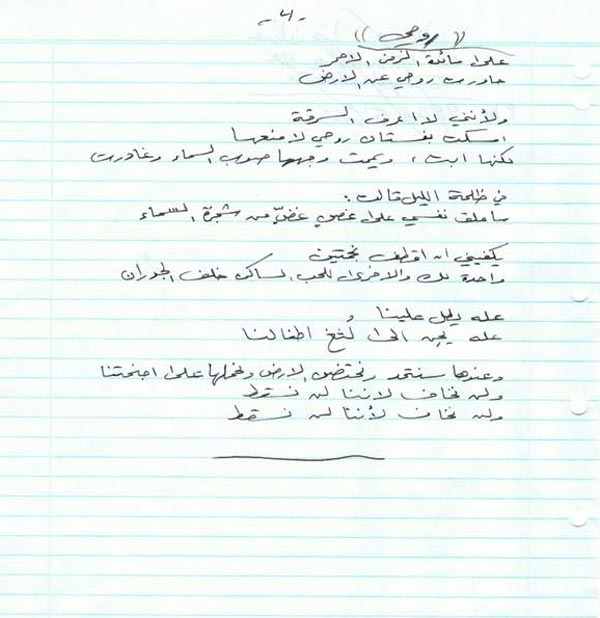 -٤-
(( روحي ))
على مائدة الزمن الاحمر
حاورت روحي عن الارض
ولأنني لا اعرف السرقة
امسكت بفستان روحي لامنعها
لكنها ابت ، ويممت وجهها صوب السماء وغادرت
في ظلمة الليل قالت :
ساعلق نفسي على غصنٍ غضٍّ من شجرة السماء
يكفيني ان اقطف نجمتين
واحدة لك والاخرى للحب الساكن خلف الجدران
عله يطل علينا
عله يحن الى لُثغ اطفالنا
وعندها سنتمدد ونحتضن الارض ونحملها على اجنحتنا
ولن نخاف لاننا لن نسقط
ولن نخاف لأننا لن نسقط